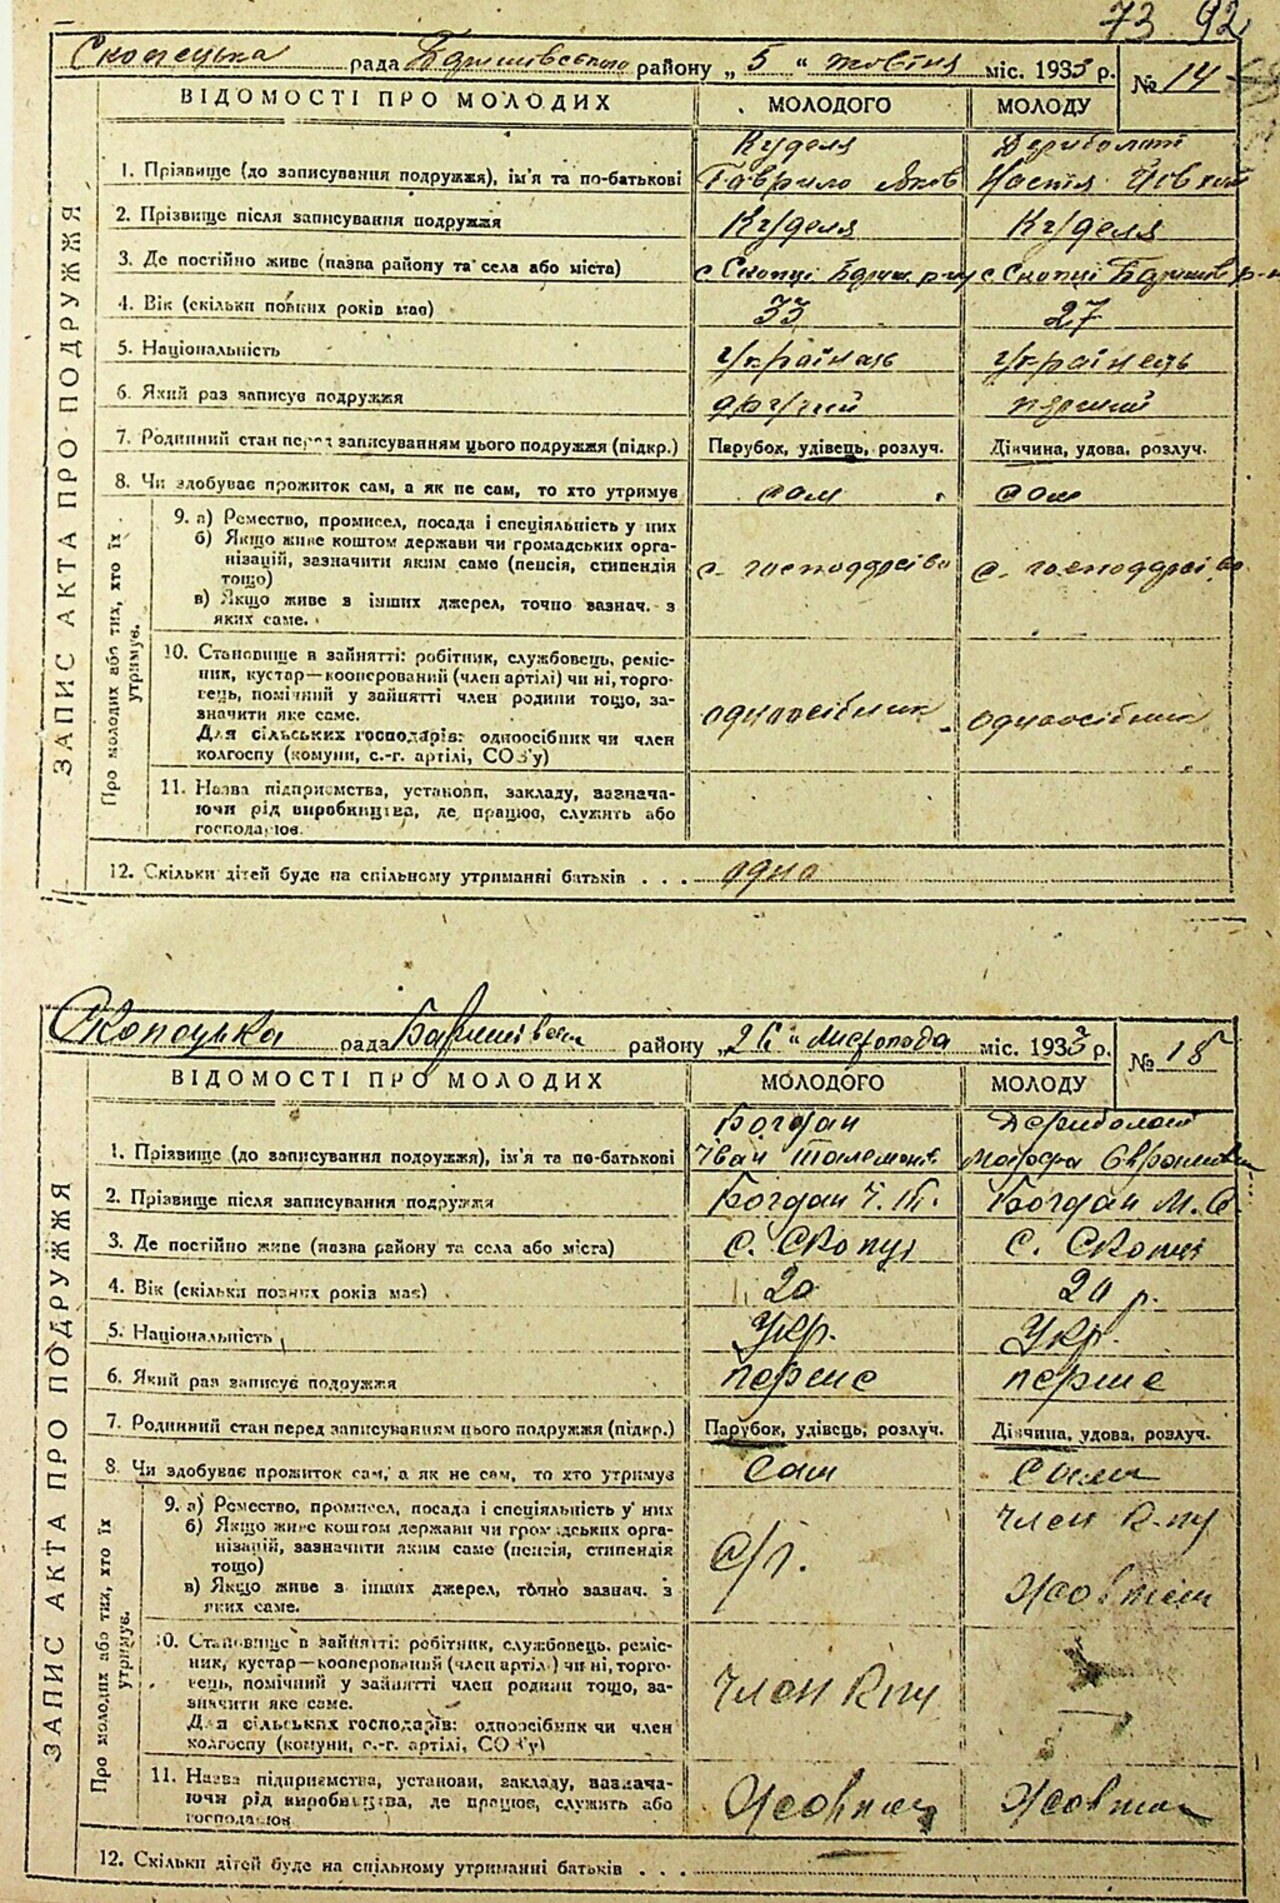 73 92
Скопецька рада Баришівського району „ 5 “ жовтня міс. 1933 р. № 14
ВІДОМОСТІ ПРО МОЛОДИХ МОЛОДОГО МОЛОДУ
ЗАПИС АКТА ПРО ПОДРУЖЖЯ
Куделя Дериболот
1. Прізвище (до записування подружжя), ім'я та по-батькові Гаврило Яков Настя
2. Прізвище після записування подружжя Куделя Куделя
3. Де постійно живе (назва району та села або міста) с Скопці Бариш. р-ну с Скопці Баришів р-н
4. Вік (скільки повних років має) 33 27
5. Національність українець українець
6. Який раз записує подружжя другий перший
7. Родинний стан перед записуванням цього подружжя (підкр.) Парубок, удівець, розлуч. Дівчина, удова, розлуч.
8. Чи здобуває прожиток сам, а як не сам, то хто утримує сам сам
Про молодих або тих, хто їх утримує.
9. а) Ремество, промисел, посада і спеціяльність у них
б) Якщо живе коштом держави чи громадських орга-
нізацій, зазначити яким саме (пенсія, стипендія с. господарство с. господарство
тощо)
в) Якщо живе з інших джерел, точно вазнач. з
яких саме.
10. Становище в зайнятті: робітник, службовець, реміс-
ник, кустар—кооперований (член артілі) чи ні, торго-
вець, помічний у зайнятті член родини тощо, за-
значити яке саме. одноосібник одноосібник
Для сільських господарів: одноосібник чи член
колгоспу (комуни, с.-г. артілі, СОЗ'у)
11. Назва підприємства, установи, закладу, вазнача-
ючи рід виробництва, де працює, служить або
господарює.
12. Скільки дітей буде на спільному утриманні батьків . . . одно
Скопецька рада Баришівськ району „ 26 “ листопада міс. 1933 р. № 15
ВІДОМОСТІ ПРО МОЛОДИХ МОЛОДОГО МОЛОДУ
ЗАПИС АКТА ПРО ПОДРУЖЖЯ
Богдан Дериболот
1. Прізвище (до записування подружжя), ім'я та по-батькові Іван
2. Прізвище після записування подружжя Богдан І. П. Богдан М. Є.
3. Де постійно живе (назва району та села або міста) с. Скопці с. Скопці
4. Вік (скільки повних років має) 20 20 р.
5. Національність Укр. Укр.
6. Який раз записує подружжя перше перше
7. Родинний стан перед записуванням цього подружжя (підкр.) Парубок, удівець, розлуч. Дівчина, удова, розлуч.
8. Чи здобуває прожиток сам, а як не сам, то хто утримує сам сама
Про молодих або тих, хто їх утримує.
9. а) Ремество, промисел, посада і спеціяльність у них член к-пу
б) Якщо живе коштом держави чи громадських орга-
нізацій, зазначити яким саме (пенсія, стипендія с/г.
тощо)
в) Якщо живе з інших джерел, точно вазнач. з Жовтень
яких саме.
10. Становище в зайнятті: робітник, службовець, реміс-
ник, кустар—кооперований (член артілі) чи ні, торго-
вець, помічний у зайнятті член родини тощо, за-
значити яке саме. член к-пу
Для сільських господарів: одноосібник чи член
колгоспу (комуни, с.-г. артілі, СОЗ'у)
11. Назва підприємства, установи, закладу, вазнача-
ючи рід виробництва, де працює, служить або Жовтень Жовтень
господарює
12. Скільки дітей буде на спільному утриманні батьків . . .